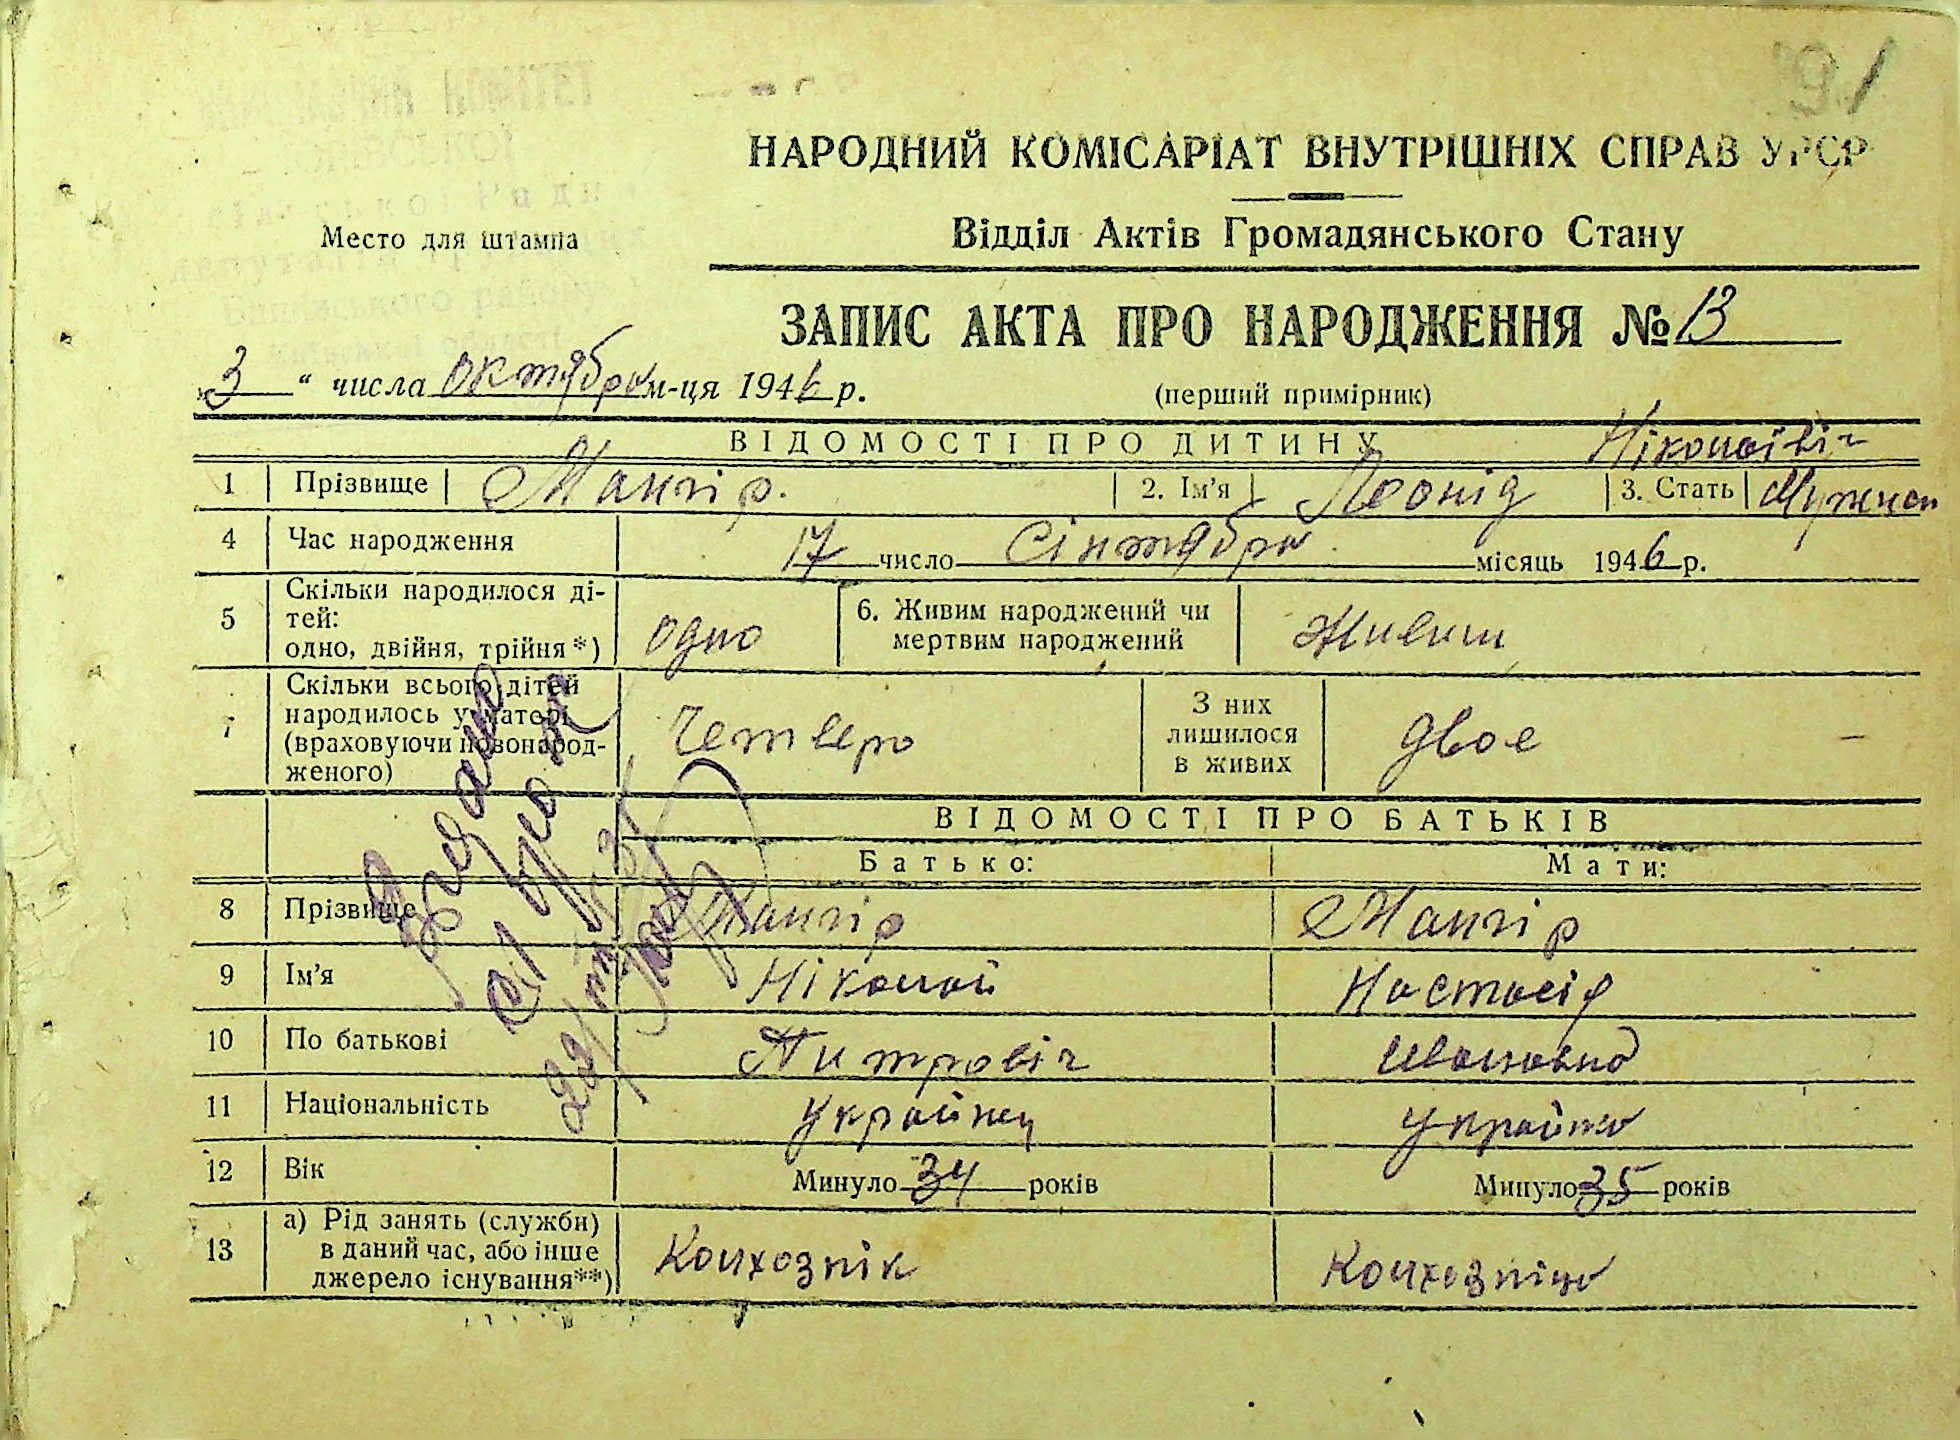 91
НАРОДНИЙ КОМІСАРІАТ ВНУТРІШНІХ СПРАВ УРСР
Место для штампа
Відділ Актів Громадянського Стану
ЗАПИС АКТА ПРО НАРОДЖЕННЯ № 13
„3“ числа октября м-ця 1946 р.
(перший примірник)
ВІДОМОСТІ ПРО ДИТИНУ
Ніколаівіч
1 Прізвище Мангір. 2. Ім'я Леонід 3. Стать Мужчен
4 Час народження 17 число Сінтября місяць 1946 р.
5 Скільки народилося ді-
тей:
одно, двійня, трійня*) одно 6. Живим народжений чи
мертвим народжений Живим
7 Скільки всього дітей
народилось у матері
(враховуючи новонарод-
женого) Четверо З них
лишилося
в живих двое
ВІДОМОСТІ ПРО БАТЬКІВ
Батько: Мати:
8 Прізвище Мангір Мангір
9 Ім'я Ніколай Настасія
10 По батькові Питровіч Ивановна
11 Національність Українец Українка
12 Вік Минуло 34 років Минуло 35 років
13 а) Рід занять (служби)
в даний час, або інше
джерело існування**) Колхознік Колхозніца